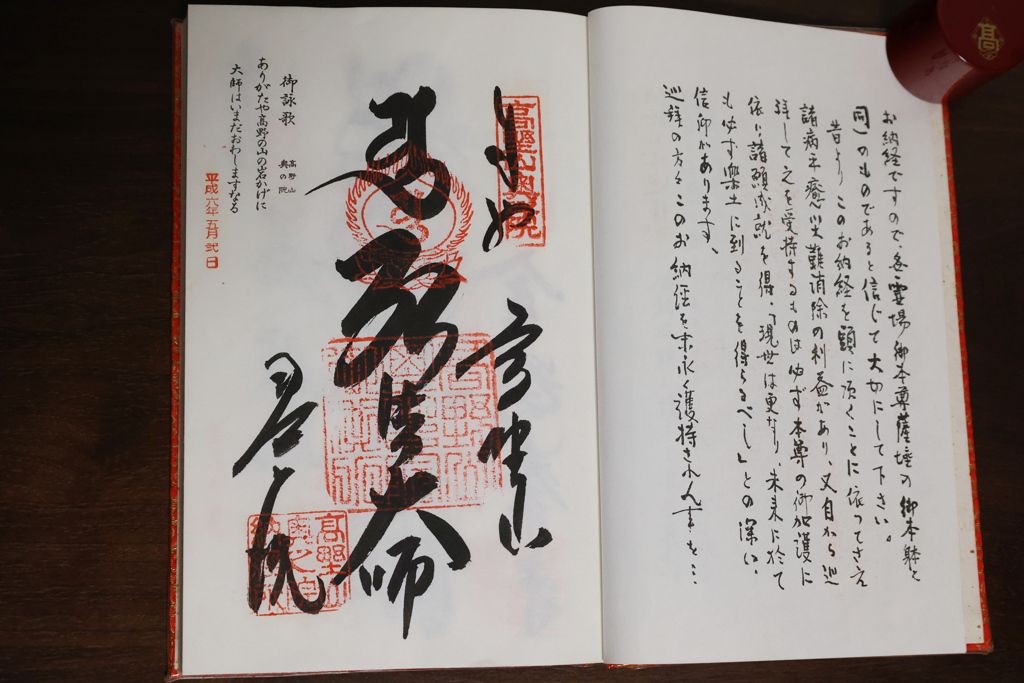 お納経ですので、各霊場御本尊薩埵の御本躰と
同一のものであると信じて大切にして下さい。
昔よりこのお納経を頭に頂くことに依ってさえ
諸病平癒災難消除の利益があり、又自から巡
拝して之を受持するものは必ず本尊の御加護に
依り諸願成就を得、「現世は更なり、未来に於て
も必ず楽土に到ることを得らるべし」との深い
信仰があります。
巡拝の方々このお納経を末永く護持されん事を…
高野山
大師
奥之院
御詠歌 高野山 奥の院
ありがたや高野の山の岩かげに
大師はいまだおわしますなる
平成六年五月弐日
高